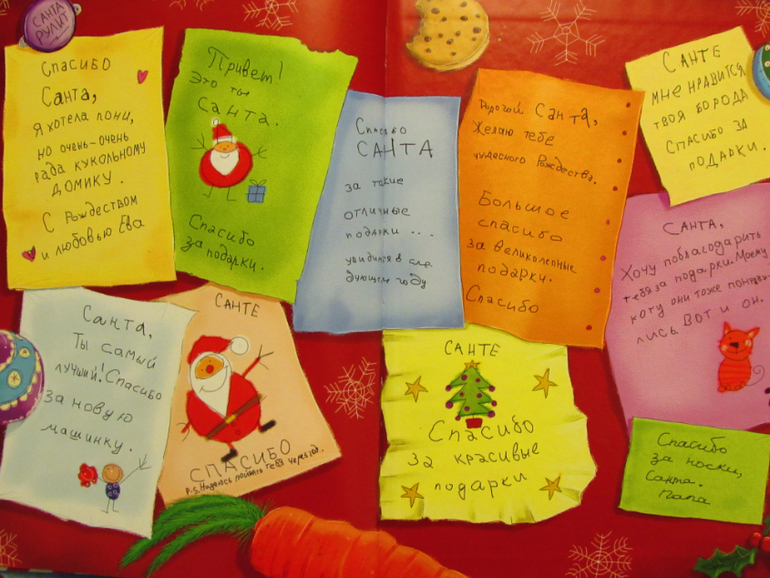 САНТА
РУЛИТ
Спасибо
Санта,
Я хотела пони,
но очень-очень
рада кукольному
домику.
С Рождеством
и любовью Ева
Привет!
Это ты
Санта.
Спасибо
за подарки.
Спасибо
САНТА
за такие
отличные
подарки ...
увидимся в сле
дующем году
Дорогой Санта,
Желаю тебе
чудесного Рождества.
Большое
спасибо
за великолепные
подарки.
Спасибо
САНТЕ
мне нравится
твоя борода
Спасибо за
подарки.
САНТА,
Хочу поблагодарить
тебя за подарки. Моему
коту они тоже понрави-
лись. Вот и он.
Санта,
Ты самый
лучший! Спасибо
за новую
машинку.
САНТЕ
СПАСИБО
P.S. Надеюсь поймать тебя через год.
САНТЕ
Спасибо
за красивые
подарки
Спасибо
за носки,
Санта.
Папа